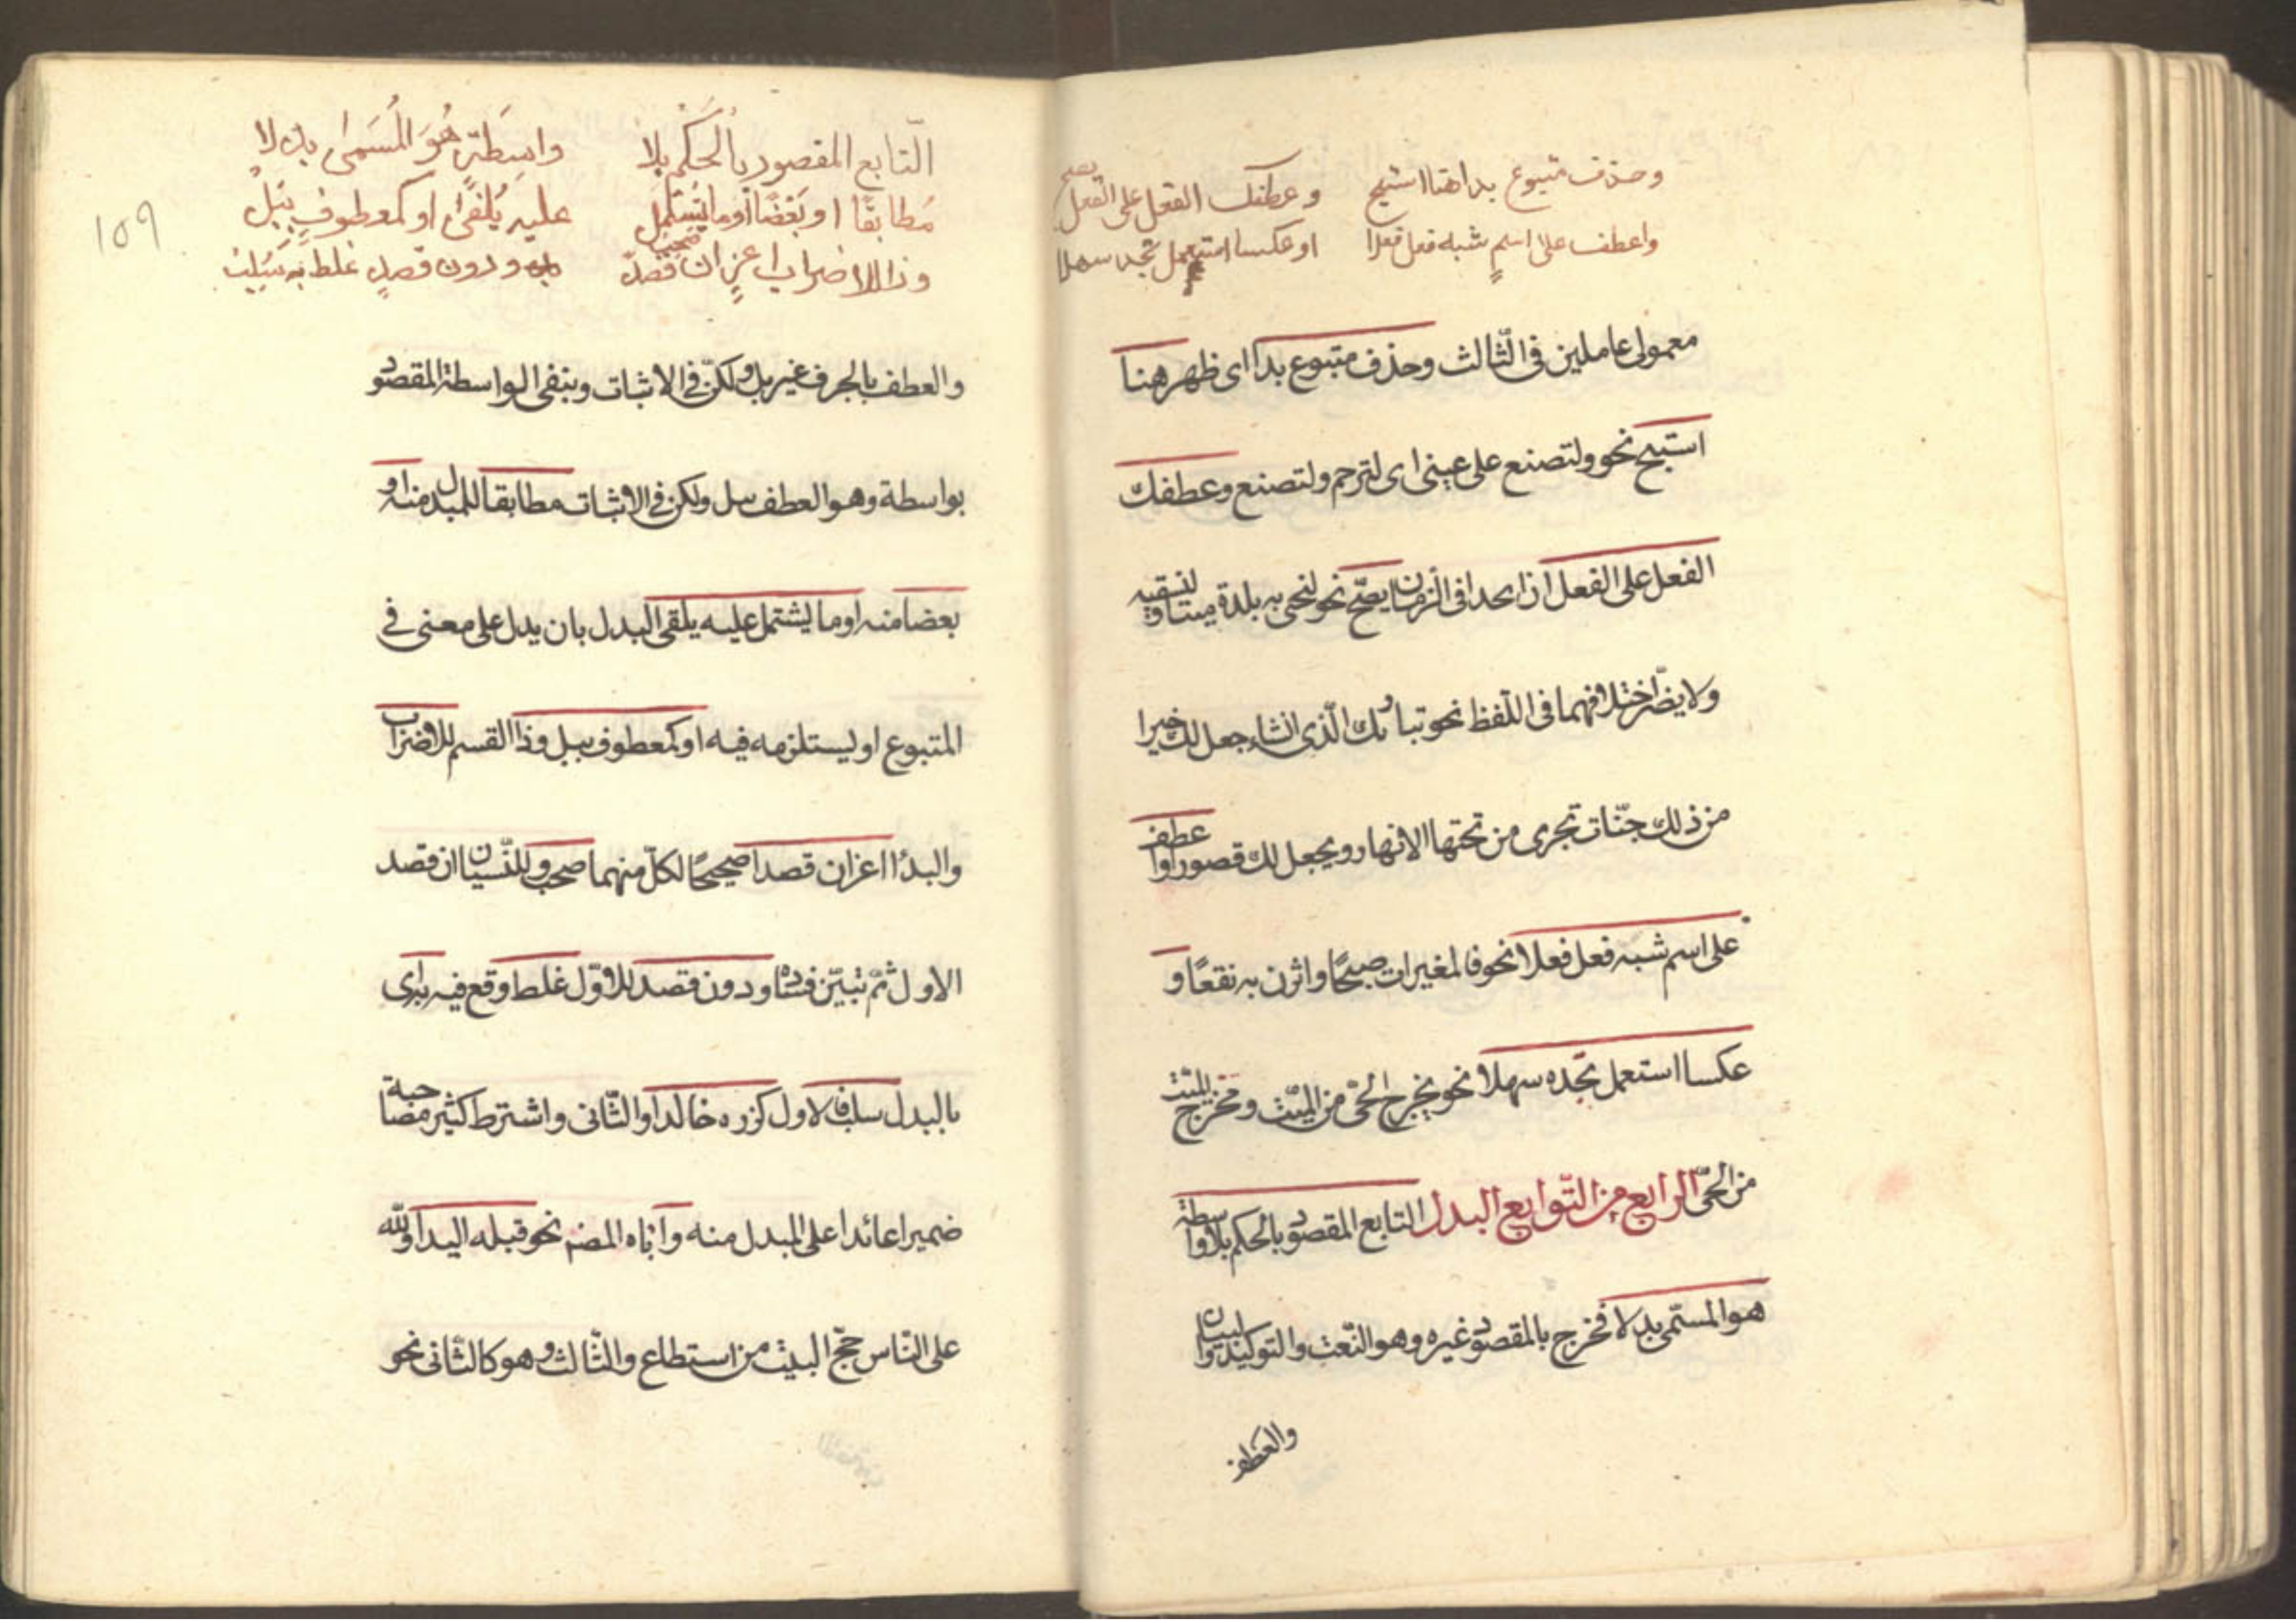 وحذف متبوع بدا هنا استبح وعطفك الفعل على الفعل يصح
واعطف على اسم شبه فعل فعلا او عكسا استعمل تجده سهلا
معمولى عاملين فى الثّالث وحذف متبوع بدا اى ظهر هنا
استبح نحو ولتصنع على عينى اى لترحم ولتصنع وعطفك
الفعل على الفعل ان اتحدا فى الزمان يصحّ نحو لنحيى به بلدة ميتا ونسقيه
ولا يضّر اختلافهما فى اللّفظ نحو تبارك الّذى ان شاء جعل لك خيرا
من ذلك جنّات تجرى من تحتها الانهار ويجعل لك قصورا واعطف
على اسم شبه فعل فعلا نحو فالمغيرات صبحًا واثرن به نقعًا و
عكسا استعمل تجده سهلا نحو يخرج الحىّ من الميّت ومخرج الميّت
من الحىّ الرابع من التّوابع البدل التابع المقصود بالحكم بلا واسطة
هو المسمّى بدلا فخرج بالمقصود غيره وهو النّعت والتوكيد والبيان
والعطف
109
التّابع المقصود بالحكم بلا واسِطَةٍ هُوَ المُسَمى بدلا
مُطابقًا او بَعْضًا أو ما يَشتمِل عليه يُلفى او كمعطوفٍ بِبَلْ
وذا للاضراب اعز ان قصدًا صحب ودون قصدٍ غلط به سُلِبْ
والعطف بالحرف غير بل ولكنّ فى الاثبات وبنفى الواسطة المقصود
بواسطة وهو العطف ببل ولكن فى الاثبات مطابقا للمبدل منه او
بعضا منه او ما يشتمل عليه يلقى البدل بان يدل على معنى فى
المتبوع او ليستلزمه فيه او كمعطوف ببل وذا القسم للاضراب
والبدا اعز ان قصدا صحيحًا لكلّ منهما صحب وللنّسيان ان قصد
الاول ثمّ تبيّن فساده ودون قصد للاوّل غلط وقع فيه براى
بالبدل سلب فالاول كزره خالدا والثّانى واشترط كثير مصاحبة
ضميرا عائدا على المبدل منه واباه المصنف نحو قبله اليدا ولله
على النّاس حجّ البيت من استطاع والثّالث وهو كالثّانى نحو